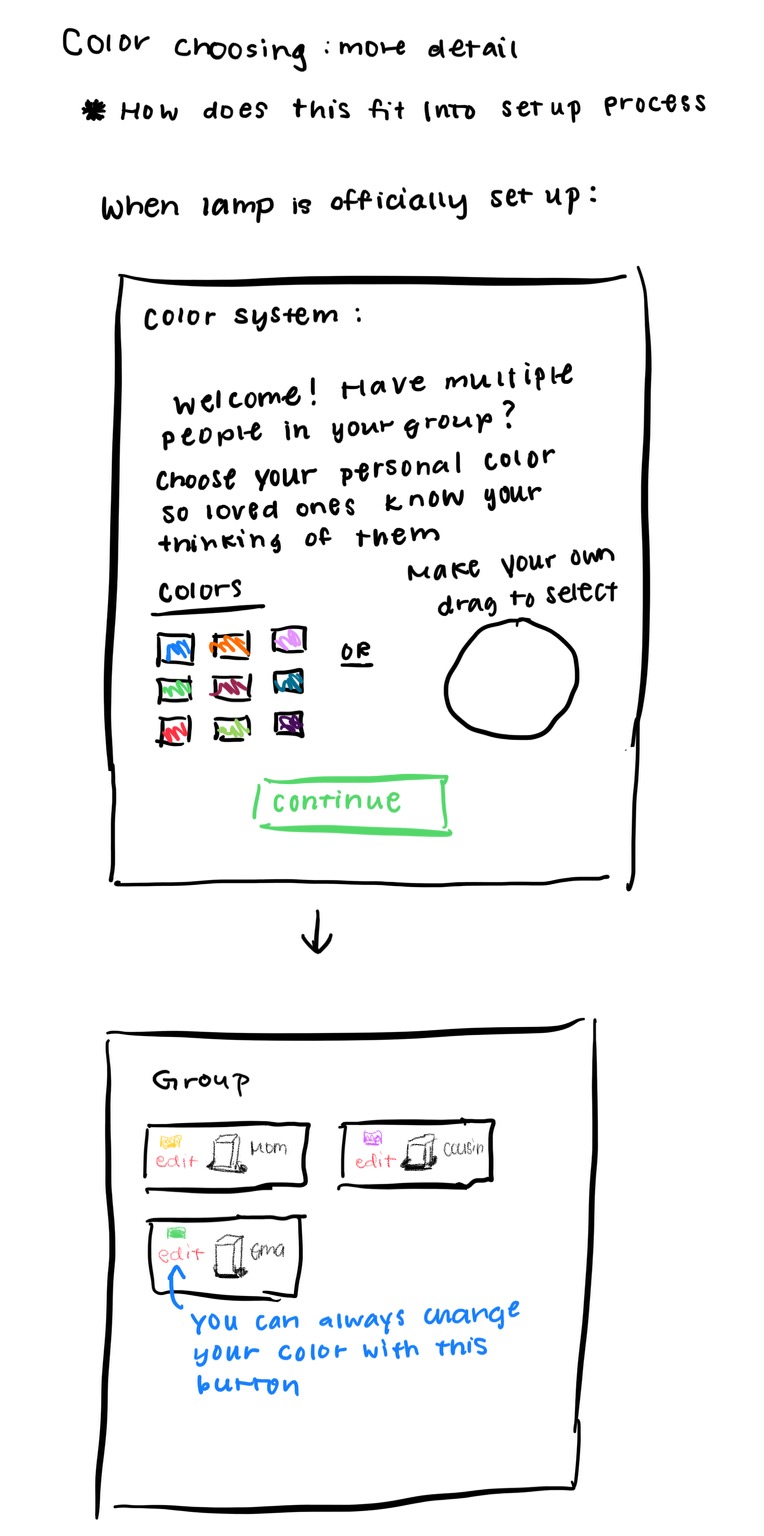 Color choosing : more detail
* How does this fit into set up process
When lamp is officially set up:
Color system :
Welcome! Have multiple
people in your group?
Choose your personal color
so loved ones know your
thinking of them
Make your own
drag to select
Colors
OR
Continue
Group
edit Mom
edit cousin
edit Gma
You can always change
your color with this
button